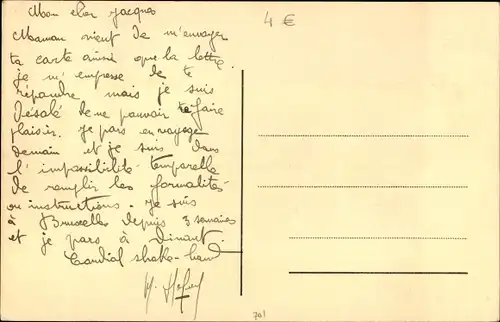 Mon cher Jacques
Maman vient de m'envoyer
ta carte ainsi que la lettre
je m'empresse de te
répondre mais je suis
désolé de ne pouvoir te faire
plaisir. Je pars en voyage
demain et je suis dans
l'impossibilité temporelle
de remplir les formalités
ou instructions. Je suis
à Bruxelles depuis 3 semaines
et je pars à Dinant.
Cordial shake-hand
4 €
701